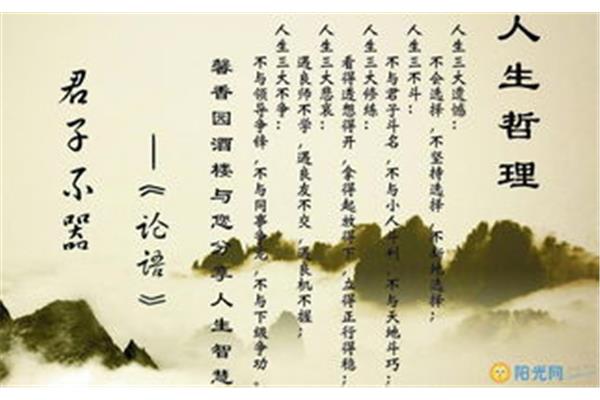 人生哲理
人生三大遗憾：
不会选择，不坚持选择，不断地选择；
人生三不斗：
不与君子斗名，不与小人斗利，不与天地斗巧；
人生三大修练：
看得透想得开，拿得起放得下，立得正行得稳；
人生三大悲哀：
遇良师不学，遇良友不交，遇良机不握；
人生三大不争：
不与领导争锋，不与同事争宠，不与下级争功。
馨香园酒楼与您分享人生智慧
——《论语》
君子不器
阳光网